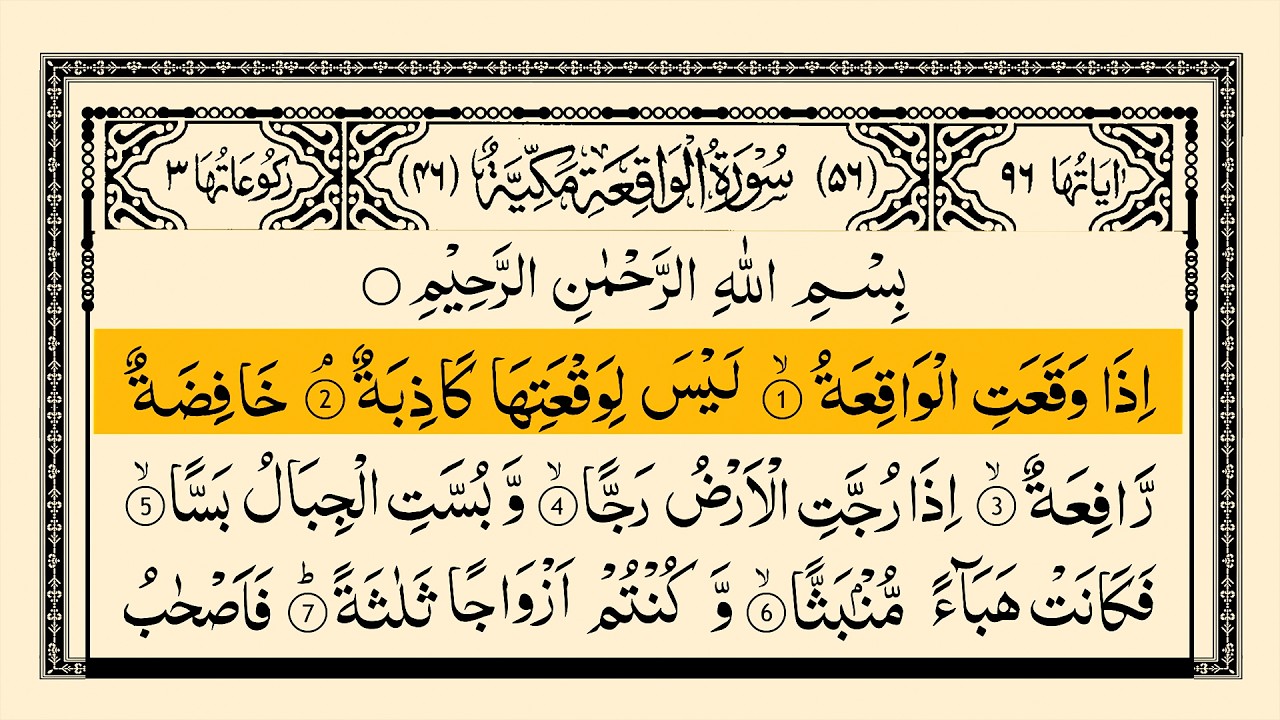 اٰيَاتُهَا ٩٦ (٥٦) سُوْرَةُ الْوَاقِعَةِ مَكِّيَّةٌ (٤٦) رَكُوْعَاتُهَا ٣
بِسْمِ اللّٰهِ الرَّحْمٰنِ الرَّحِيْمِ ○
اِذَا وَقَعَتِ الْوَاقِعَةُ ۙ ① لَيْسَ لِوَقْعَتِهَا كَاذِبَةٌ ۘ ② خَافِضَةٌ
رَّافِعَةٌ ۙ ③ اِذَا رُجَّتِ الْاَرْضُ رَجًّا ۙ ④ وَّ بُسَّتِ الْجِبَالُ بَسًّا ۙ ⑤
فَكَانَتْ هَبَآءً مُّنْۢبَثًّا ۙ ⑥ وَّ كُنْتُمْ اَزْوَاجًا ثَلٰثَةً ؕ ⑦ فَاَصْحٰبُ